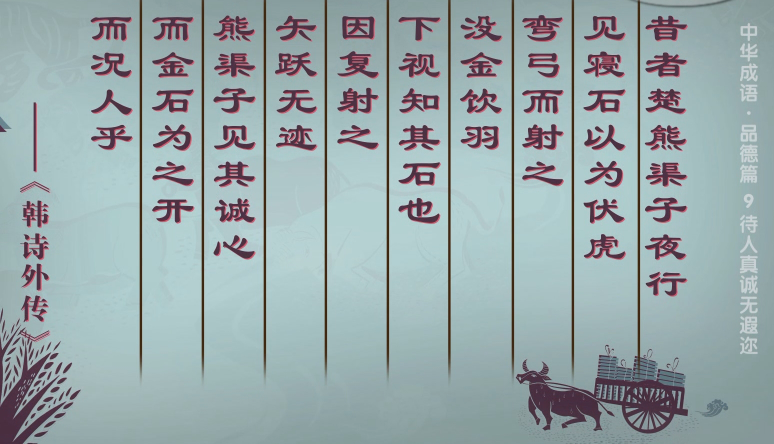 中华成语·品德篇 9 待人真诚无遐迩
昔者楚熊渠子夜行
见寝石以为伏虎
弯弓而射之
没金饮羽
下视知其石也
因复射之
矢跃无迹
熊渠子见其诚心
而金石为之开
而况人乎
——《韩诗外传》